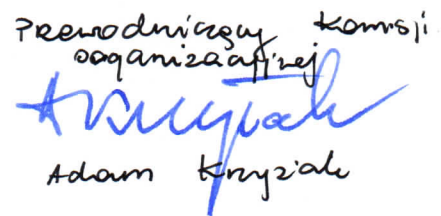 Przewodniczący Komisji
organizacyjnej
Adam Krzyziak